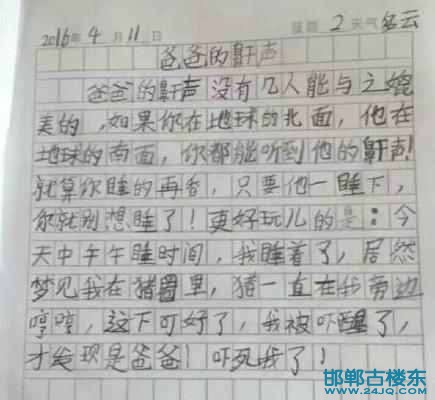 2016年4月11日 星期2天气多云
爸爸的鼾声
爸爸的鼾声没有几人能与之媲
美的，如果你在地球的北面，他在
地球的南面，你都能听到他的鼾声!
就算你睡的再香，只要他一睡下，
你就别想睡了！更好玩儿的是：今
天中午午睡时间，我睡着了，居然
梦见我在猪圈里，猪一直在我旁边
哼哼，这下可好了，我被吓醒了，
才发现是爸爸！吓死我了！
邯郸古楼东
www.24JQ.com